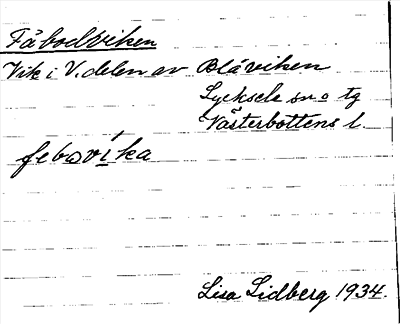 Fäbodviken
Vik i V. delen av Blåviken
Lycksele sn o tg
Västerbottens l.
febɷvika
Lisa Lidberg 1934.